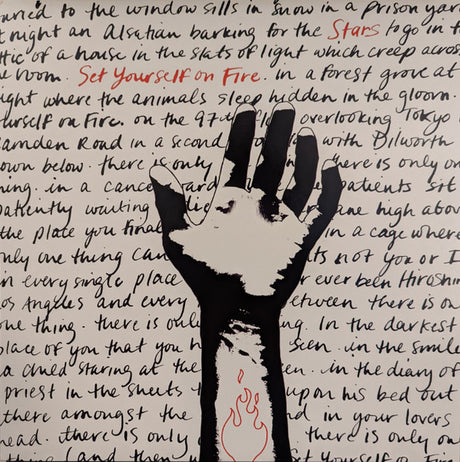 buried to the window sills in snow in a prison yard
at night an Alsatian barking for the Stars to go in t
attic of a house in the slats of light which creep across
the room. Set Yourself on Fire. in a forest grove at
night where the animals sleep hidden in the gloom.
Yourself on Fire. on the 97th fl overlooking Tokyo
Camden Road in a second with Dilworth
own below. there is only here is only on
hing. in a cance ard patients sit
patiently waiting die ane high abov
the place you final in a cage where
only one thing can ts not you or I
in every single place r ever been Hiroshim
Los Angeles and every etween there is o
one thing. there is onl ng. In the darkest
place of you that you h seen. in the smile
a child staring at the en. in the diary of
priest in the sheets upon his bed out
there amongst the nd in your lovers
head. there is only there is only on
thing (and then Set Yourself on Fire